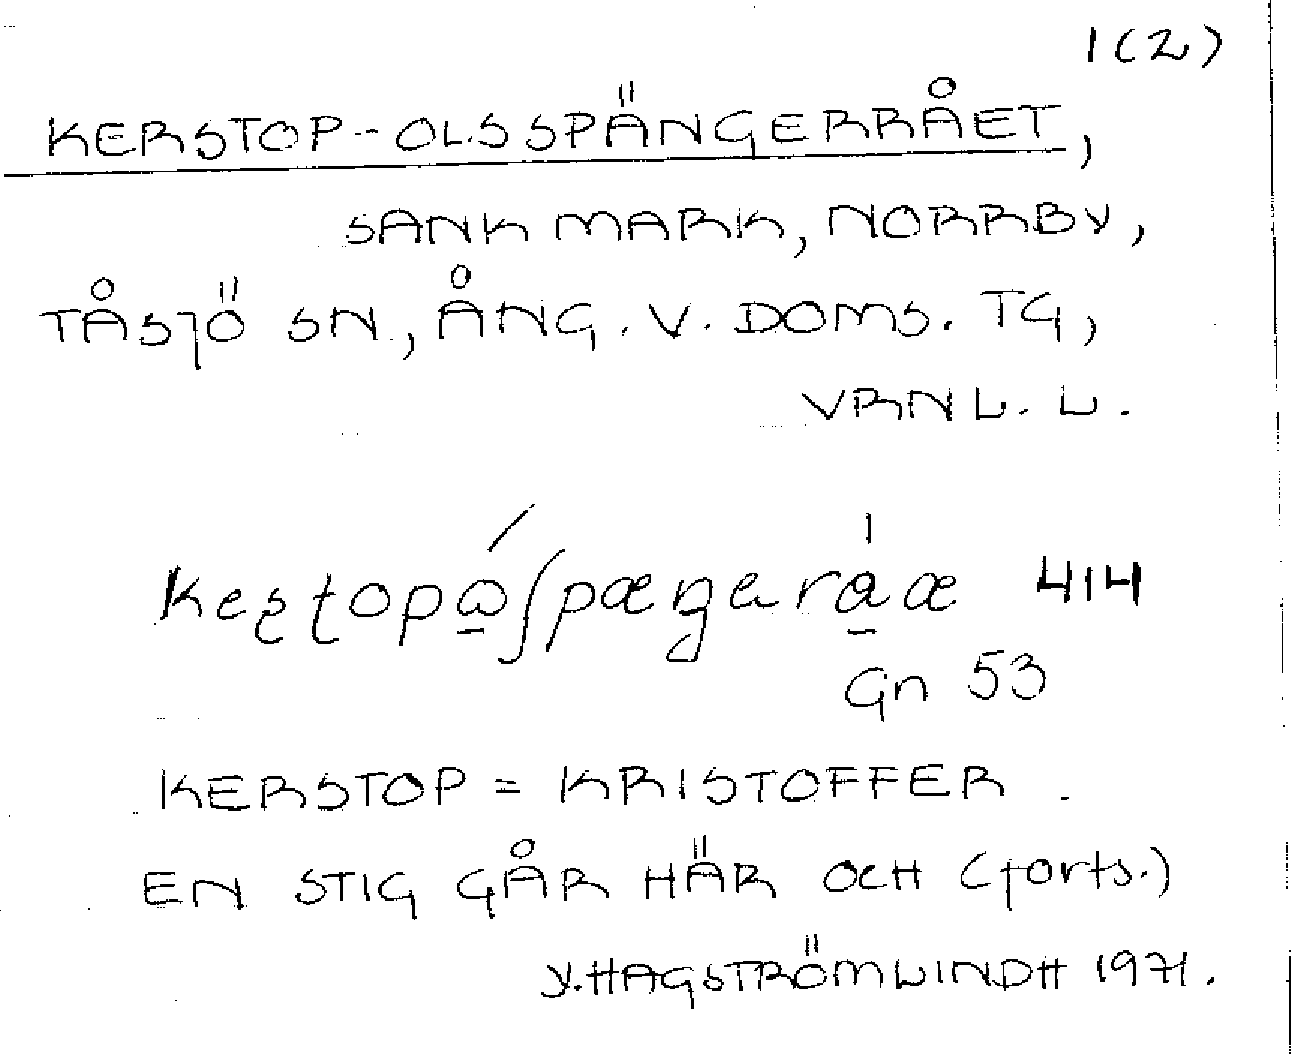 1(2)
KERSTOP-OLSSPÄNGERRÅET,
SANK MARK, NORRBY,
TÅSJÖ SN., ÅNG. V. DOMS. TG,
VRNL. L.
414
Gn 53
KERSTOP = KRISTOFFER.
EN STIG GÅR HÄR OCH (forts.)
Y. HAGSTRÖMLINDH 1971.